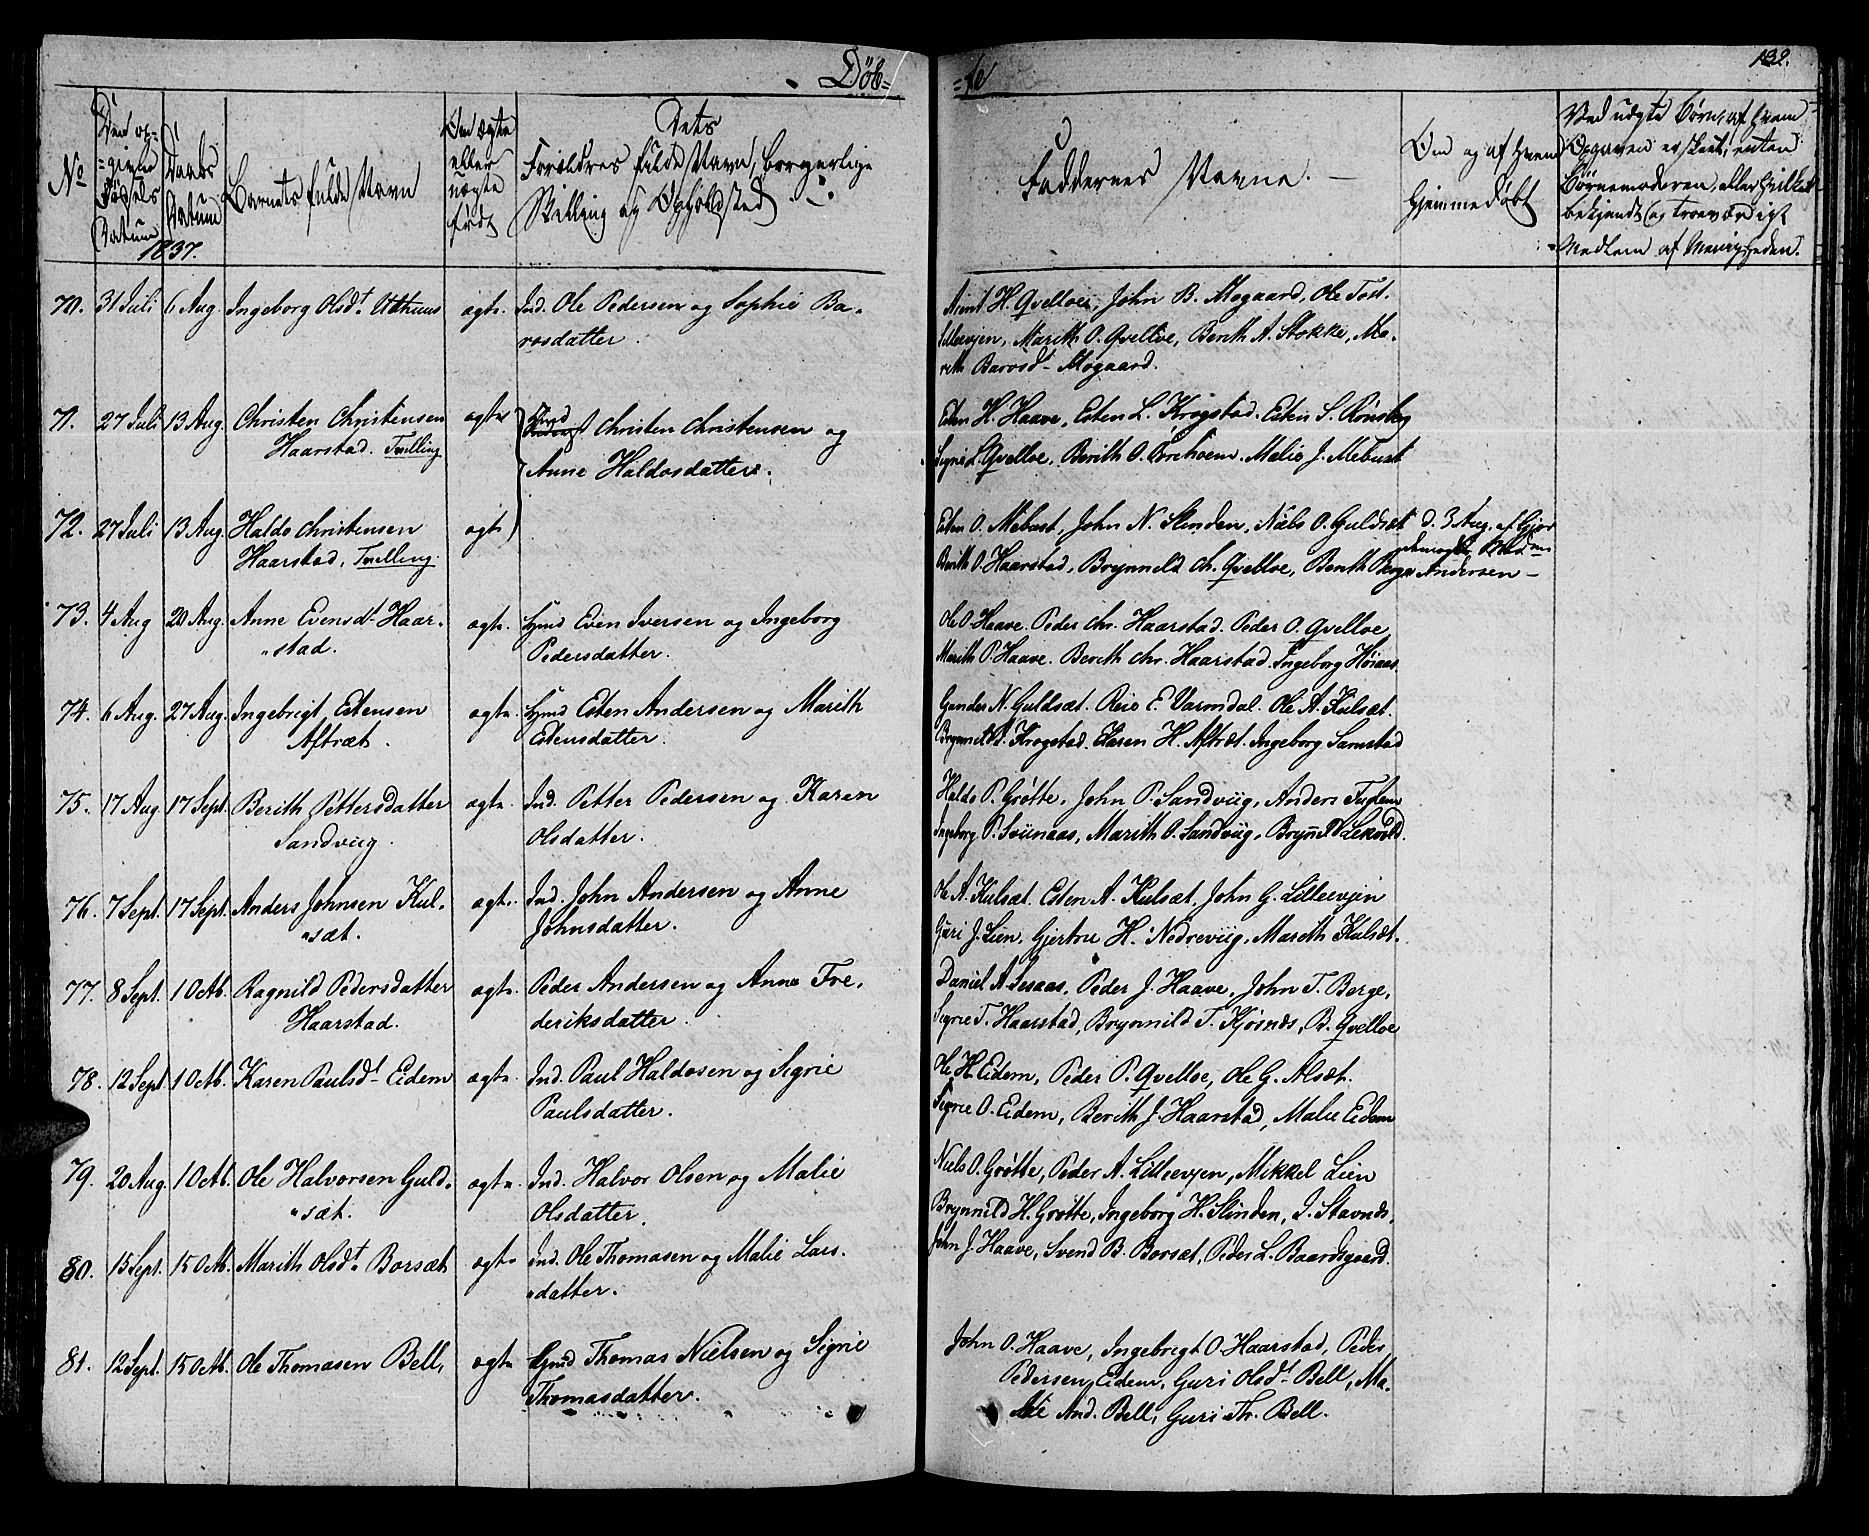 Döb=
=te
132.
No
Den op=
=givne
Fødsels
Datum
Daabs
Datum
1837.
Barnets fulde Navn
Om ægte
eller
uægte
født
Dets
Forældres fulde Navn, borgerlige
Stilling og Opholdsted
Faddernes Navne. —
Om og af hvem
hjemmedøbt
Ved uægte Børn, af hvem
Opgaven er skeet, enten
Børnemoderen, eller hvilket
bekjendt og troeværdigt
Medlem af Menigheden.
70. 31 Juli 6 Aug. Ingeborg Olsdt. Uthuus ægte. Ind. Ole Pedersen og Sophie Ba=
rosdatter.
H. Qvelloe, John B. Mogaard, Ole Tost.
Lillevjen, Marith O. Qvelloe, Berith A. Stokke, Ma=
rith Barosdt. Mogaard.
71. 27 Juli 13 Aug. Christen Christensen ægte Christen Christensen og
Haarstad. Tvilling Anne Haldosdatter.
Esten H. Haave, Esten L. Krogstad. Esten S. Rønsberg
Sigrie L. Qvelloe, Berith O. Marie J. Mebust
72. 27 Juli 13 Aug. Haldo Christensen ægte
Haarstad. Tvilling.
Esten O. Mebust, John N. Slinden, Niels O. Guldsæt d. 3 Aug. af Gjor
Berith O. Haarstad, Brynnild Ch. Qvelloe, Berith Berge
demoder Mad.m
Andersen —
73. 4 Aug 20 Aug. Anne Evensdt. Haar=
"stad.
ægte. Huusmd Even Iversen og Ingeborg
Pedersdatter.
Ole O. Haave. Peder Chr. Haarstad. Peder O. Qvelloe
Marith P. Haave. Berith Chr. Haarstad. Ingeborg Høiaas.
74. 6 Aug. 27 Aug. Ingebrigt Estensen ægte. Huusmd Esten Andersen og Marith
Aftræt. Estensdatter.
Gunder N. Guldsæt. E. Varmdal. Ole A. Kulsæt.
Brynnild Krogstad. Karen H. Aftræt. Ingeborg Samstad
75. 17 Aug 17 Sept. Berith Pettersdatter ægte. Ind. Petter Pedersen og Karen
Sandviig. Olsdatter.
Haldo P. Grøtte, John P. Sandviig, Anders Fuglem
Ingeborg P. Sviinaas, Marith O. Sandviig, Brynnild Lekvold.
76. 7 Sept. 17 Sept. Anders Johnsen Kul=
"sæt.
ægte. Ind. John Andersen og Anne
Johnsdatter.
Ole A. Kulsæt. Esten A. Kulsæt. John G. Lillevjen
Guri J. Lien, Gjertru H. Nedreviig, Marith Kulsæt.
77. 8 Sept. 1 Octb. Ragnild Pedersdatter ægte. Peder Andersen og Anne Fre=
Haarstad. deriksdatter.
Daniel A. Peder J. Haave, John T. Berge,
Sigrie T. Haarstad, Brynnild T. Kjøsnes, B. Qvelloe
78. 12 Sept 1 Octb. Karen Paulsdt. Eidem ægte. Ind. Paul Haldosen og Sigrie
Paulsdatter.
Ole H. Eidem, Peder P. Qvelloe, Ole G. Alsæt.
Sigrie O. Eidem, Berith J. Haarstad, Malie Eidem
79. 20 Aug. 1 Octb. Ole Halvorsen Guld=
"sæt.
ægte. Ind. Halvor Olsen og Malie
Olsdatter.
Niels O. Grøtte, Peder A. Lillevjen, Mikkel Lien
Brynnild H. Grøtte, Ingeborg H. Slinden, I. Stavnes.
80. 15 Sept. 15 Octb. Marith Olsdt. Borsæt ægte Ind. Ole Thomasen og Malie Lars=
"datter.
John J. Haave, Svend B. Borsæt, Peder L. Baardsgaard.
81. 12 Sept. 15 Octb. Ole Thomasen Bell, ægte Huusmd Thomas Nielsen og Sigrie
Thomasdatter.
John O. Haave, Ingebrigt O. Haarstad, Peder
Pedersen Eidem, Guri Olsdt. Bell, Ma=
lie And. Bell, Guri Th. Bell.